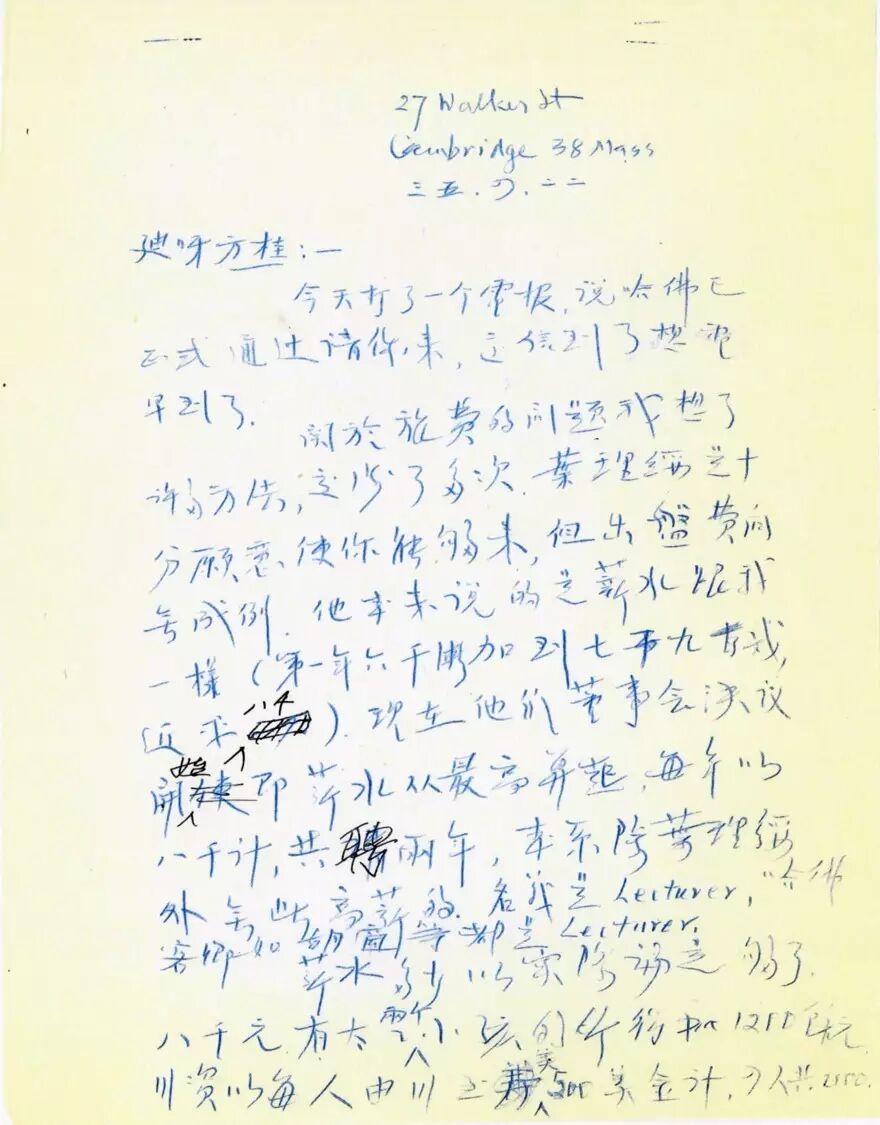 27 Walker St
Cambridge 38 Mass
三五.四.二二
方桂：一
今天打了一个電报，说哈佛已
正式通过请你来，这信到了想电
早到了.
関於旅费的问题我想了
许多方法，交涉了多次. 葉理绥是十
分願意使你能够来，但出盤费向
無成例. 他本来说的是薪水跟我
一樣（第一年六千漸加到七千九百
近来八千）. 现在他们董事会决议
開始即薪水从最高算起，每年以
八千计，共聘两年，本系除葉理绥
外無此高薪的. 名義是Lecturer，哈佛
客卿如胡適等都是Lecturer.
薪水多少以实际论是够了.
八千元有太小孩的 1200
川資以每人由川美500美金计，四人共2000.